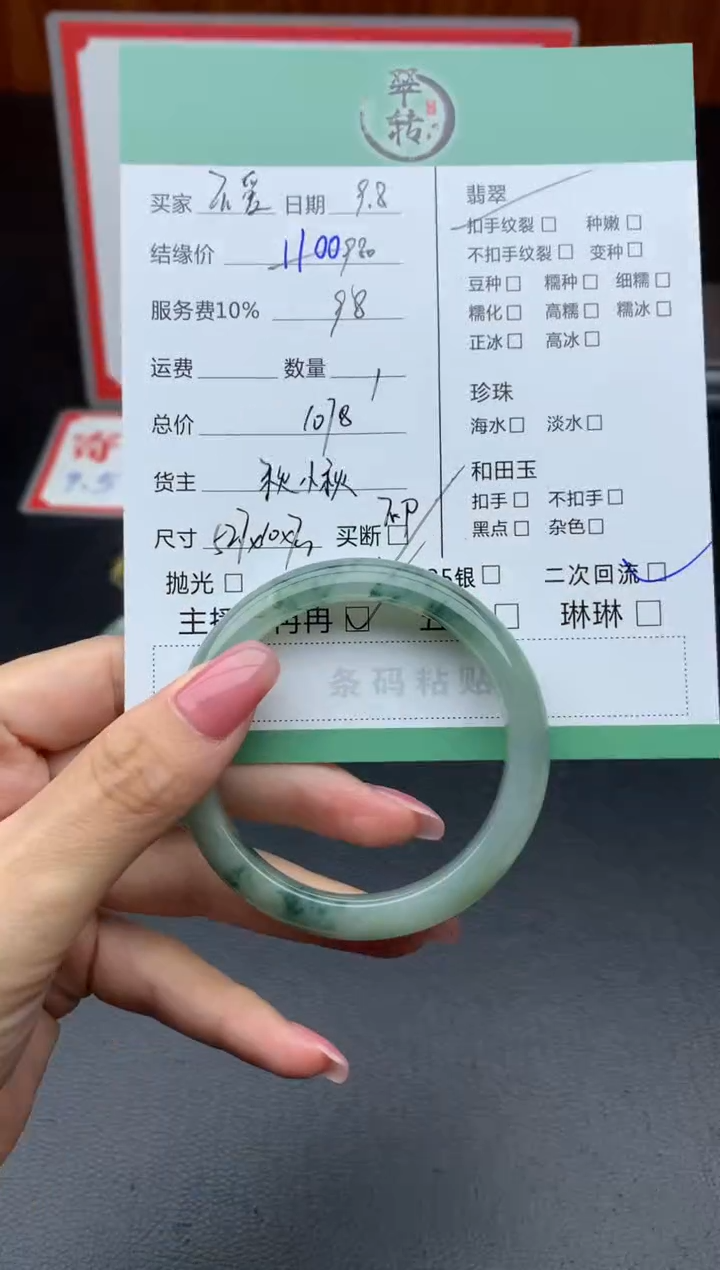 翠转
买家 不爱 日期 9.8
结缘价 1100 980
服务费10% 98
运费 数量 1
总价 1078
货主 秋小秋
尺寸 买断
抛光 银 二次回流
主播 冉冉 琳琳
条码粘贴
翡翠
扣手纹裂 种嫩
不扣手纹裂 变种
豆种 糯种 细糯
糯化 高糯 糯冰
正冰 高冰
珍珠
海水 淡水
和田玉
扣手 不扣手
黑点 杂色
寄
9.5